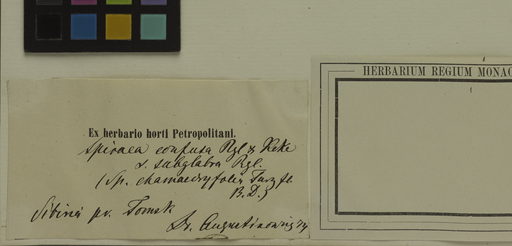 Ex herbario horti Petropolitani.
Spiraea confusa Rgl & Keke
α. subglabra Rgl.
(Sp. chamaedryfolia Turcz fl.
B.D.)
Sibiria pr. Tomsk
Dr. Augustinowicz
HERBARIUM REGIUM MONAC